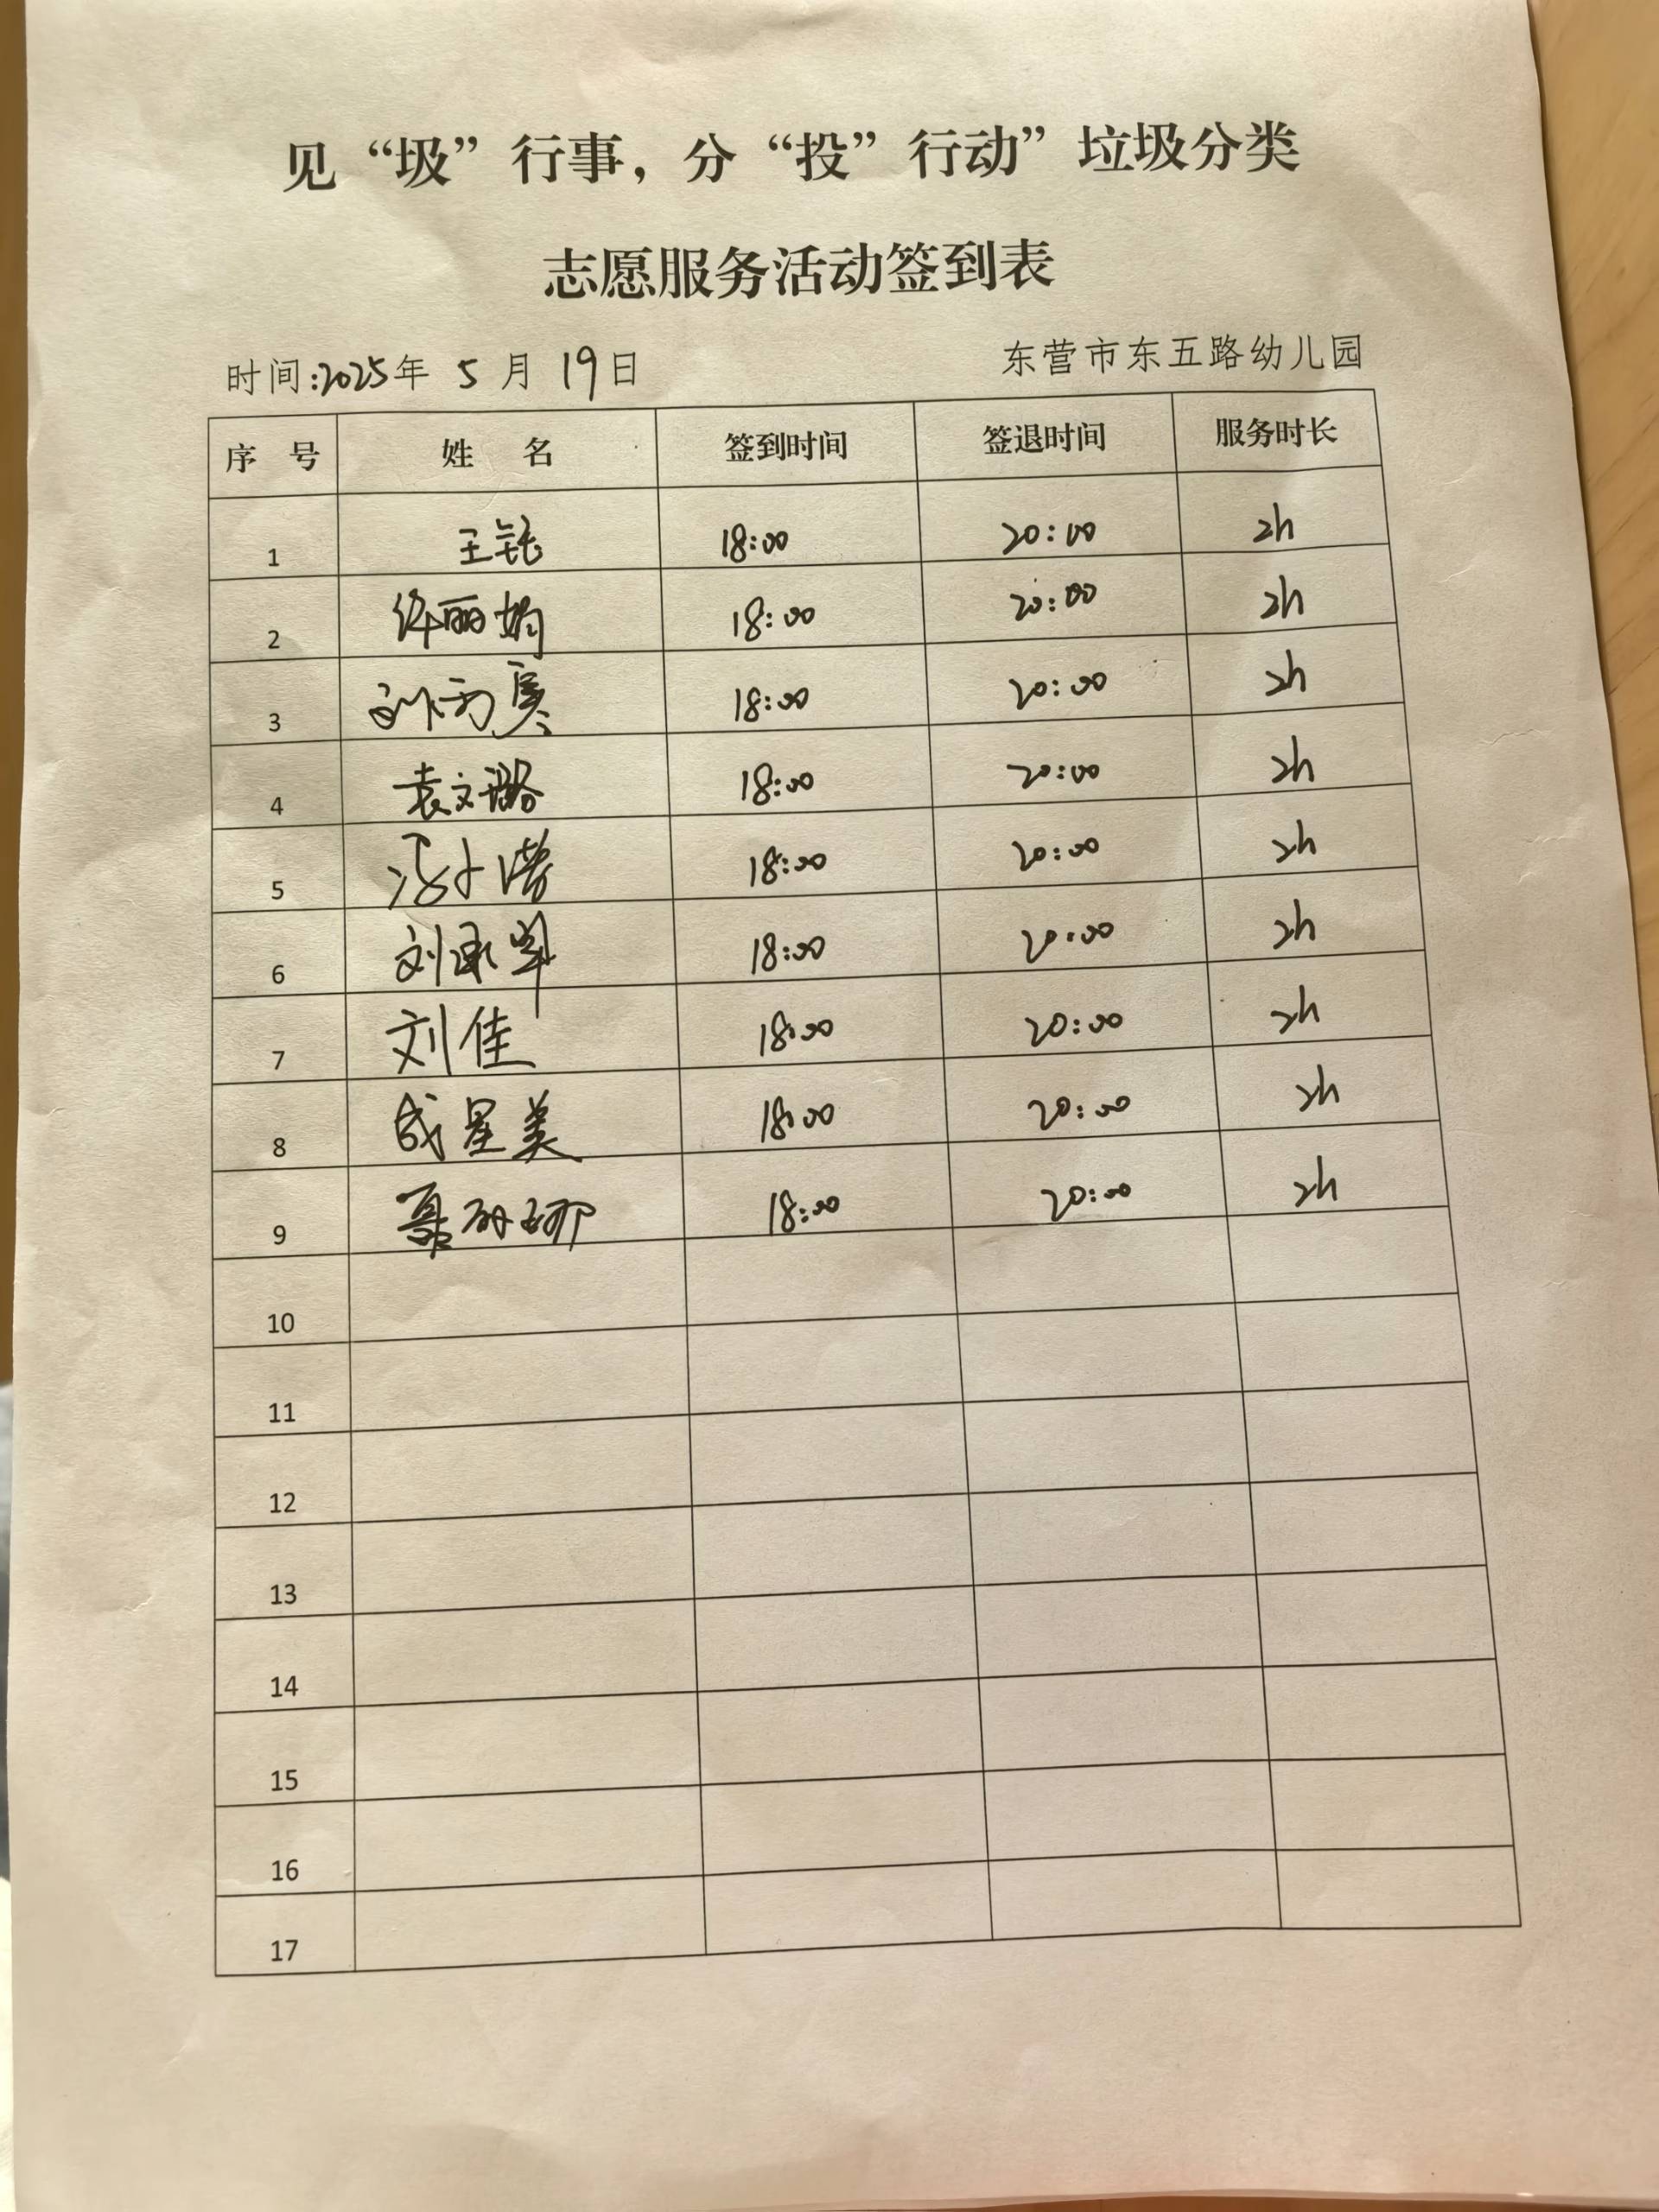 见“圾”行事，分“投”行动”垃圾分类
志愿服务活动签到表
时间:2025年 5 月 19日 东营市东五路幼儿园
序 号 姓 名 签到时间 签退时间 服务时长
1 王 18:00 20:00 2h
2 许丽娟 18:00 20:00 2h
3 18:00 20:00 2h
4 袁文璐 18:00 20:00 2h
5 18:00 20:00 2h
6 刘 18:00 20:00 2h
7 刘佳 18:00 20:00 2h
8 成星美 18:00 20:00 2h
9 18:00 20:00 2h
10
11
12
13
14
15
16
17